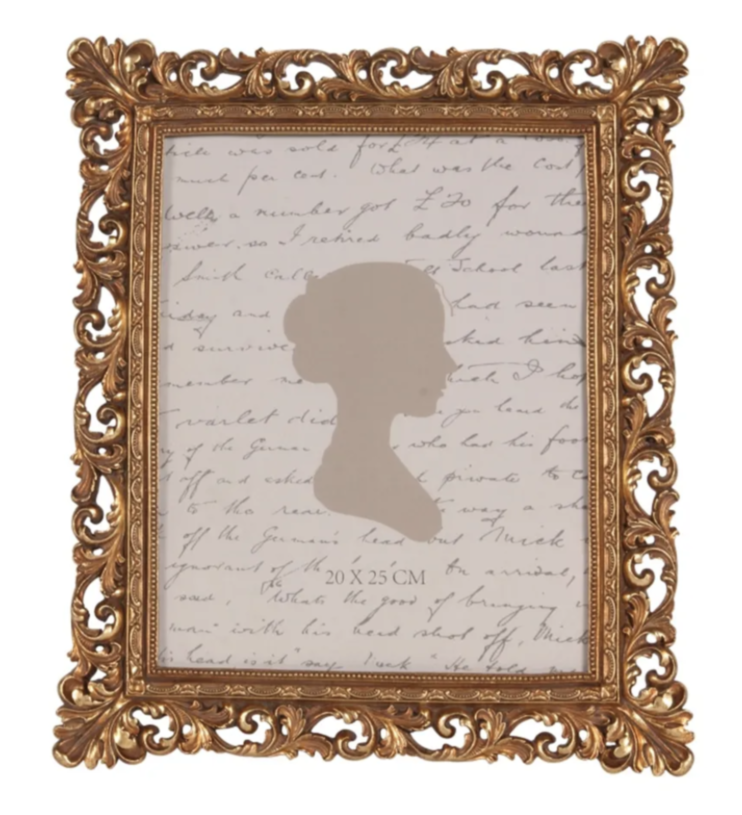 was sold for at a
much per cent. What was the cost
well, a number got £20 for the
so I retired badly wound
Smith School last
and had seen
asked him
member I hop
varlet did you land the
of the German who had his foot
off and asked private to
to the rear. way a sho
off the German's head but Mick
ignorant of th on arrival,
20 X 25 CM
said, "Whats the good of bringing
man" with his head shot off, Mick
head is it" say Mick "He told